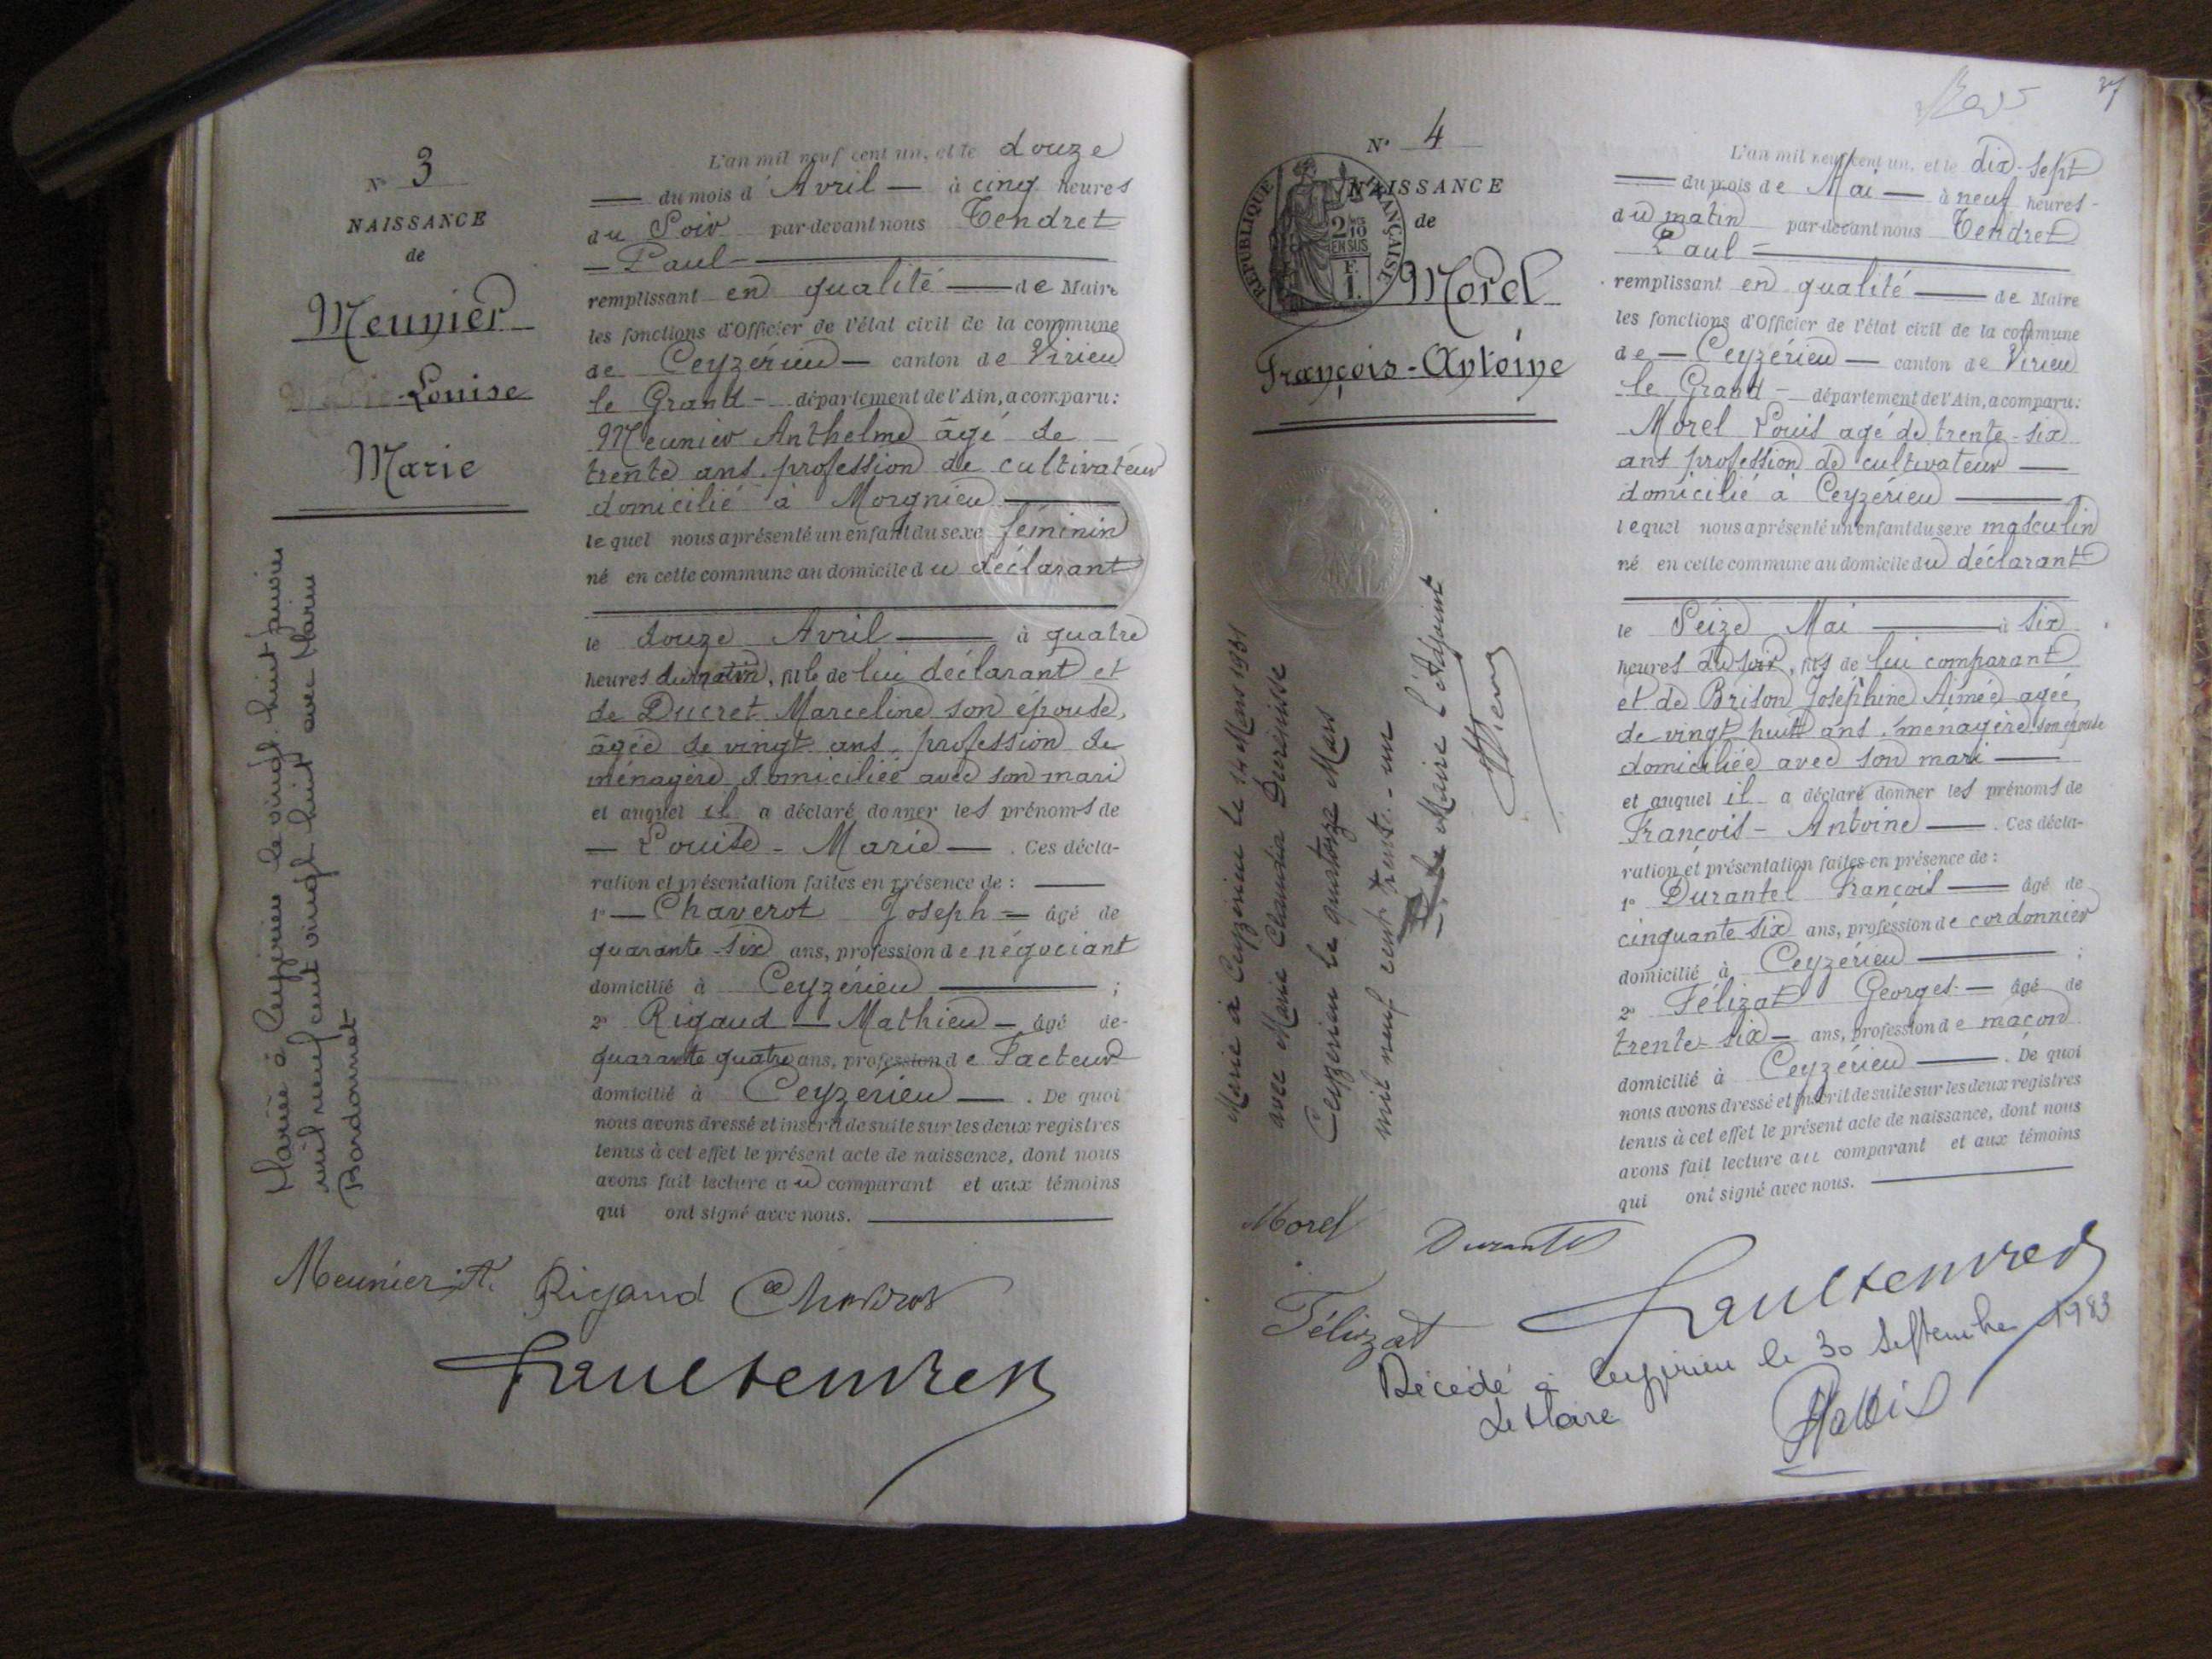 N° 3
NAISSANCE
de
Meunier
Louise
Marie
Mariée à Ceyzérieu le vingt huit janvier
mil neuf cent vingt huit avec Marius
Bardonnet
L'an mil neuf cent un, et le douze
du mois d'Avril à cinq heures
du Soir par-devant nous Tendret
Paul
remplissant en qualité de Maire
les fonctions d'Officier de l'état civil de la commune
de Ceyzérieu canton de Virieu
le Grand département de l'Ain, a comparu:
Meunier Anthelme âgé de
trente ans profession de cultivateur
domicilié à Morgnieu
lequel nous a présenté un enfant du sexe féminin
né en cette commune au domicile du déclarant
le douze Avril à quatre
heures du matin, fille de lui déclarant et
de Ducret Marceline son épouse,
âgée de vingt ans, profession de
ménagère domiciliée avec son mari
et auquel il a déclaré donner les prénoms de
Louise - Marie. Ces décla-
ration et présentation faites en présence de :
1° Chaverot Joseph âgé de
quarante-six ans, profession de négociant
domicilié à Ceyzérieu ;
2° Rigaud Mathieu âgé de
quarante quatre ans, profession de Facteur
domicilié à Ceyzérieu. De quoi
nous avons dressé et inscrit de suite sur les deux registres
tenus à cet effet le présent acte de naissance, dont nous
avons fait lecture au comparant et aux témoins
qui ont signé avec nous.
Meunier A. Rigaud Chaverot
Paul Tendret
37
N° 4
NAISSANCE
de
REPUBLIQUE FRANÇAISE
2/10
EN SUS
F.
1.
Morel
François-Antoine
Marié à Ceyzérieu le 14 Mars 1931
avec Marie Claudia
Ceyzérieu le quatorze Mars
mil neuf cent trente-un
Le Maire l'Adjoint
L'an mil neuf cent un, et le dix-sept
du mois de Mai à neuf heures
du matin par-devant nous Tendret
Paul
remplissant en qualité de Maire
les fonctions d'Officier de l'état civil de la commune
de Ceyzérieu canton de Virieu
le Grand département de l'Ain, a comparu:
Morel Louis agé de trente-six
ans profession de cultivateur
domicilié à Ceyzérieu
lequel nous a présenté un enfant du sexe masculin
né en cette commune au domicile du déclarant
le Seize Mai à six
heures du soir, fils de lui comparant
et de Brison Joséphine Aimée agée
de vingt huit ans, ménagère son épouse
domiciliée avec son mari
et auquel il a déclaré donner les prénoms de
François - Antoine. Ces décla-
ration et présentation faites en présence de :
1° Durantel François âgé de
cinquante six ans, profession de cordonnier
domicilié à Ceyzérieu ;
2° Félizat Georges âgé de
trente-six ans, profession de maçon
domicilié à Ceyzérieu. De quoi
nous avons dressé et inscrit de suite sur les deux registres
tenus à cet effet le présent acte de naissance, dont nous
avons fait lecture au comparant et aux témoins
qui ont signé avec nous.
Morel Durantel
Félizat Paul Tendret
Décédé à Ceyzérieu le 30 Septembre 1983
Le Maire